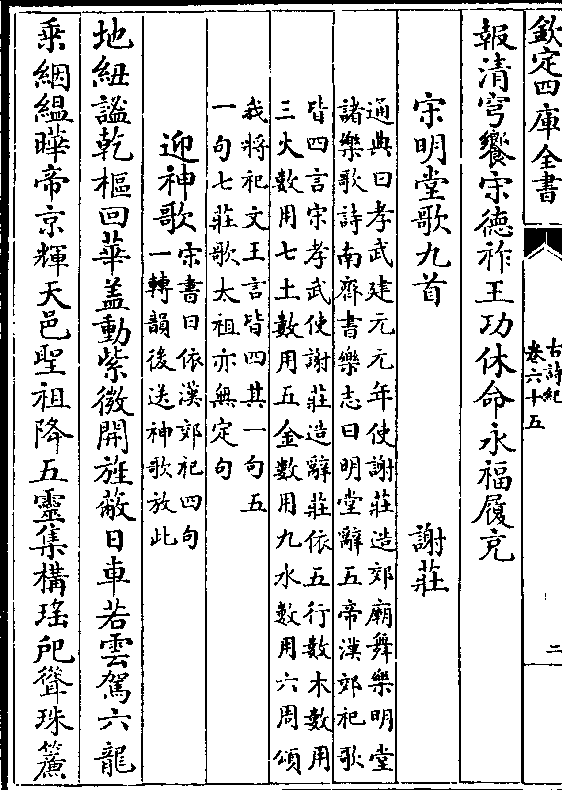 欽定四庫全書
古詩紀
卷六十五
二
報清穹饗宋德祚王功休命永福履充
宋明堂歌九首 謝莊
通典曰孝武建元元年使謝莊造郊廟舞樂明堂
諸樂歌詩南齊書樂志曰明堂辭五帝漢郊祀歌
皆四言宋孝武使謝莊造辭莊依五行數木數用
三火數用七土數用五金數用九水數用六周頌
我將祀文王言皆四其一句五
一句七莊歌太祖亦無定句
迎神歌 宋書曰依漢郊祀四句
一轉韻後送神歌放此
地紐謐乾樞回華盖動紫微開旌蔽日車若雲駕六龍
乘絪縕曄帝京輝天邑聖祖降五靈集構瑤戺聳珠簾